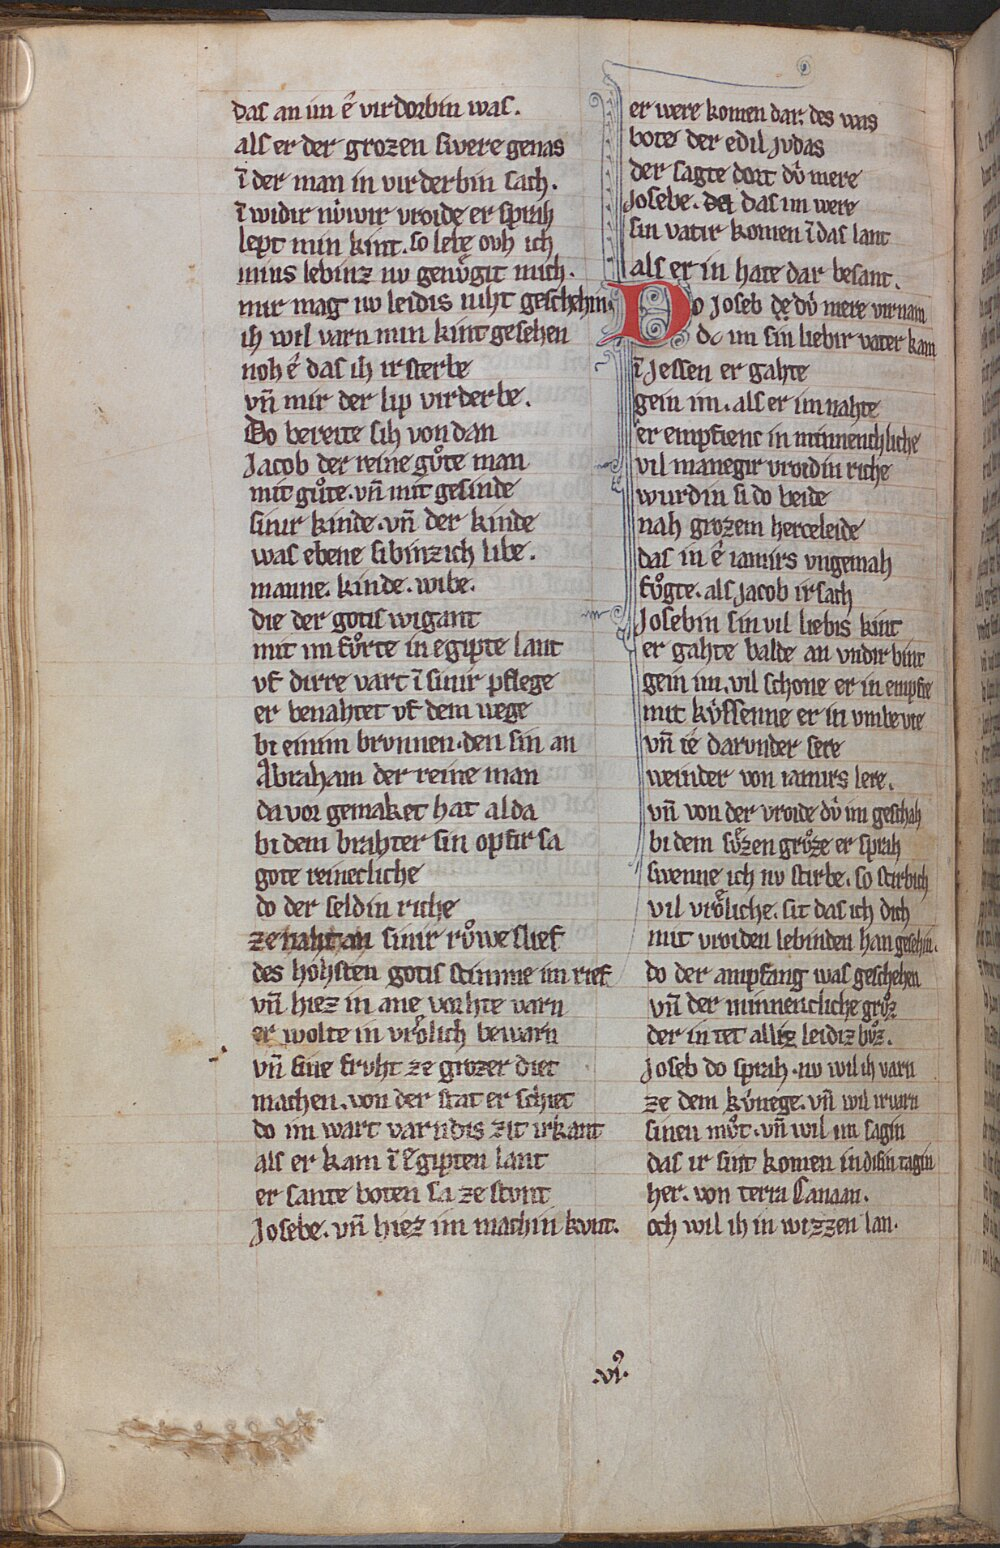 das an im ê virdorbin was.
als er der grozen swere genas
ī der man in virderbin sach.
ī widir nv̊wir vroide er sprah
lept min kint. so lebe ovh ich
mins lebinz nv genv̊git mich.
mir mag nv leidis niht geschehin
ih wil varn min kint gesehen
noh ê das ih irsterbe
vn̄ mir der lip virderbe.
Do bereite sih von dan
Jacob der reine gůte man
mit gůte. vn̄ mit gesinde
sinir kinde. vn̄ der kinde
was ebene sibinzich libe.
manne. kinde. wibe.
die der gotis wigant
mit im fůrte in egipte lant
vf dirre vart ī sinir pflege
er benahtet vf dem wege
bi einim brvnnen. den sin an
Abraham der reine man
da vor gemaket hat al da
bi dem brahter sin opfir sa
gote reinecliche
do der seldin riche
ze naht an sinir růwe slief
des hohsten gotis stimme im rief
vn̄ hiez in ane vorhte varn
er wolte in vrôlich bewarn
vn̄ sine frvht ze grozer diet
machen. von der stat er schiet
do im wart varndis zit irkant
als er kam ī Egipten lant
er sante boten sa ze stvnt
Josebe. vn̄ hiez im machin kvnt.
er were komen dar. des was
bote der edil Jvdas
der sagte dort dv̊ mere
Josebe. das im were
sin vatir komen ī das lant
als er in hate dar besant.
Do Joseb dv̊ mere virnam
dc im sin liebir vater kam
ī Jessen er gahte
gein im. als er im nahte
er empfienc in minnenchliche
vil manegir vroidin riche
wurdin si do beide
nah grozem herceleide
das in ê iamirs vngemah
fůgte. als Jacob irsach
Josebin sin vil liebis kint
er gahte balde an vndirbint
gein im. vil schone er in empfie
mit kv̊ssenne er in vmbevie
vn̄ ie darvnder sere
weinder von iamirs lere.
vn̄ von der vroide dv̊ im geschah
bi dem sůzen grůze er sprah
swenne ich nv stirbe. so stirbich
vil vrôliche. sit das ich dich
mit vroiden lebinden han gesehin.
do der ampfang was geschehen
vn̄ der minnencliche grůz
der in tet alliz leidiz bůz.
Joseb do sprah. nv wil ih varn
ze dem kv̊nege. vn̄ wil irvarn
sinen můt. vn̄ wil im sagin
das ir sint komen in disin tagin
her. von terra Canaan.
och wil ih in wizzen lan.
.vi.